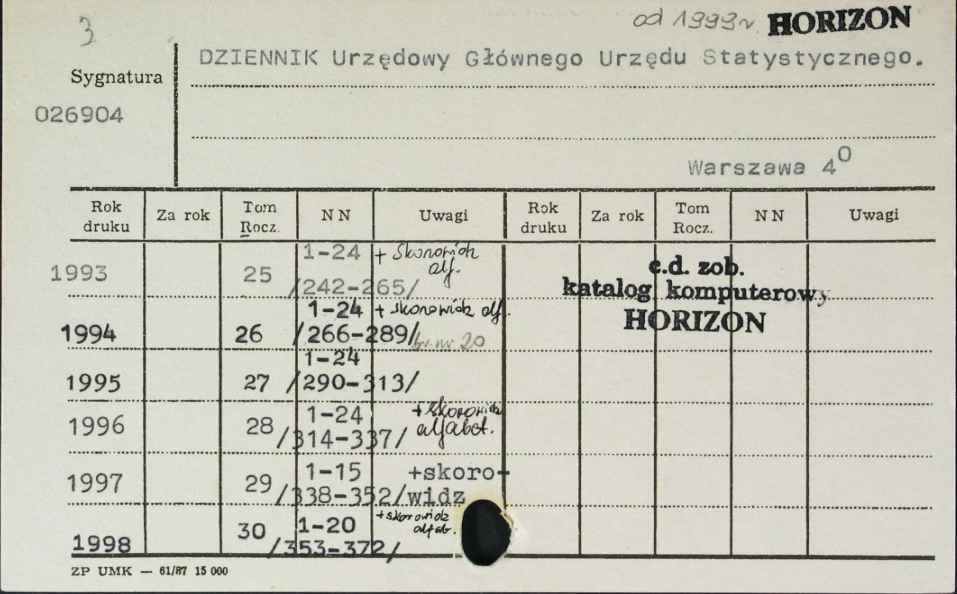 3
od 1999r HORIZON
DZIENNIK Urzędowy Głównego Urzędu Statystycznego.
Sygnatura
026904
Warszawa 4⁰
Rok druku Za rok Tom Rocz. NN Uwagi Rok druku Za rok Tom Rocz. NN Uwagi
1993 25 1-24 /242-265/ + skorowidz alf.
c.d. zob.
katalog komputerowy
HORIZON
1994 26 1-24 /266-289/ + skorowidz alf. br. nr 20
1995 27 1-24 /290-313/
1996 28 1-24 /314-337/ + skorowidz alfabet.
1997 29 1-15 /338-352/ +skoro-
widz
1998 30 1-20 /353-372/ + skorowidz alfab.
ZP UMK — 61/87 15 000